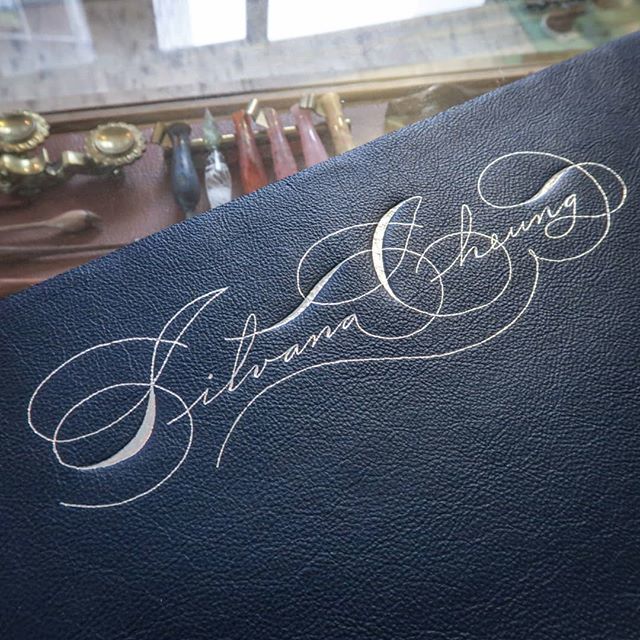 Silvana Cheung